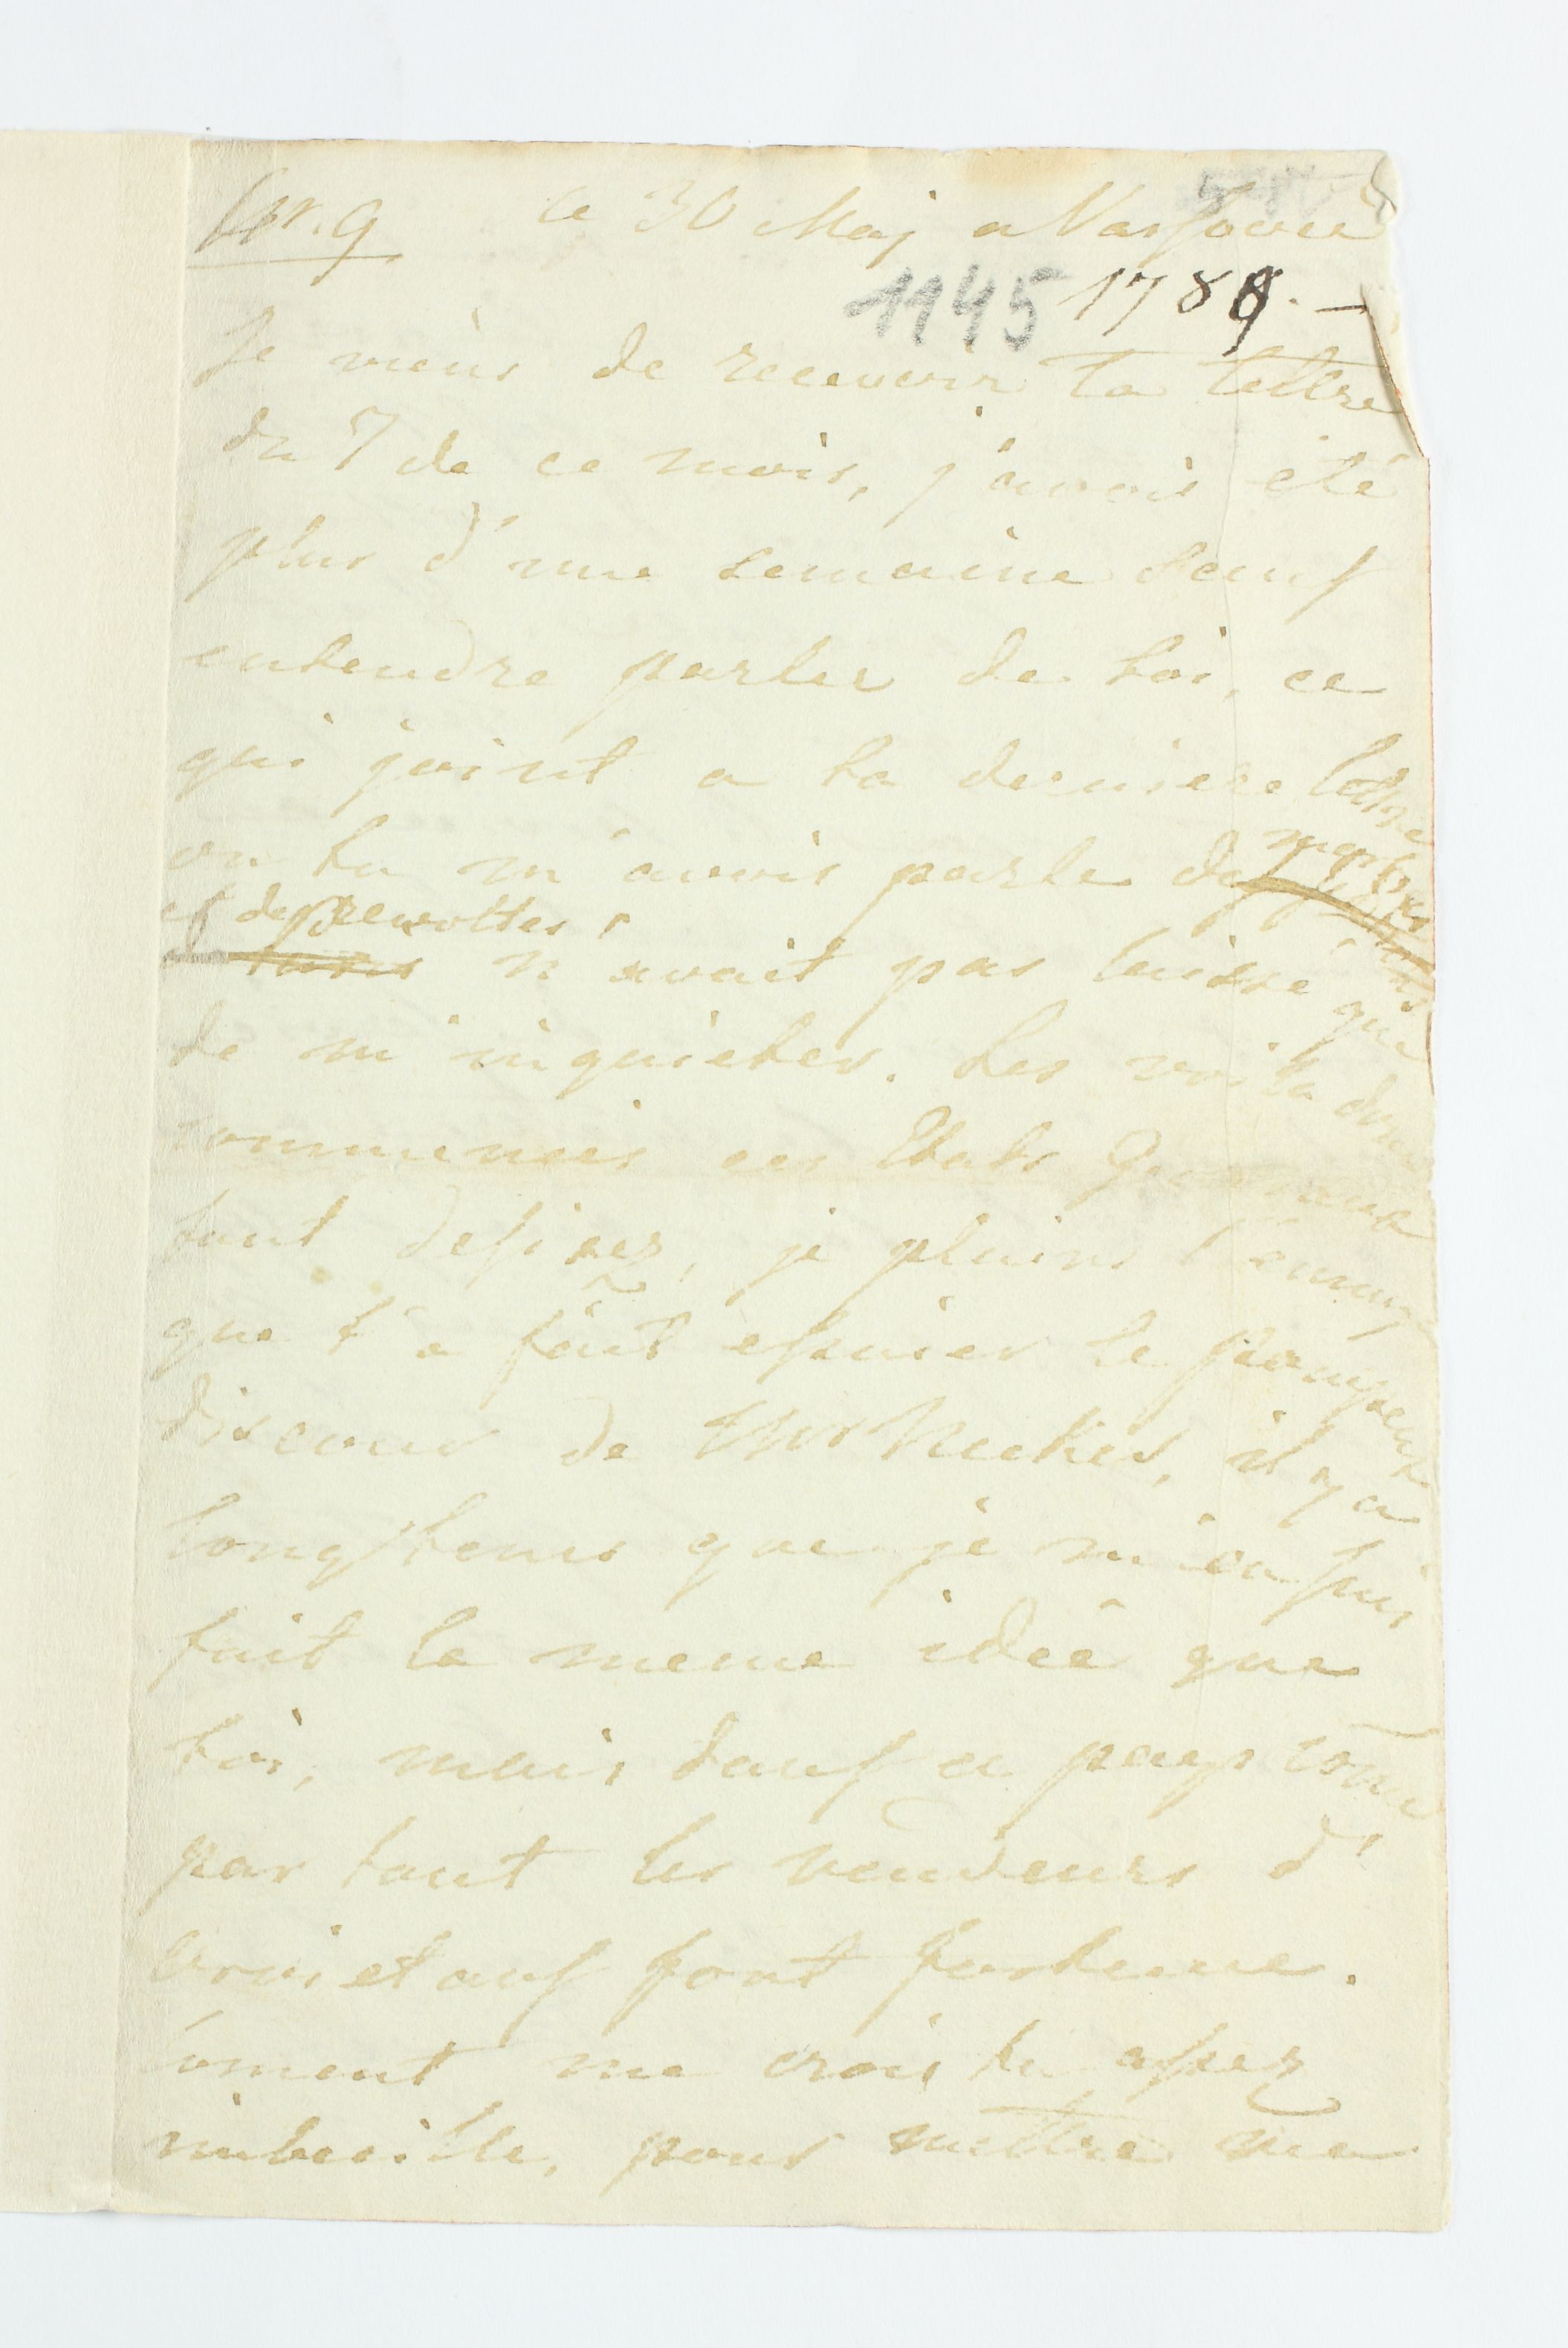 Nr. 9 ce 30 Maj a Varsovie
1145 1789. —
Je viens de recevoir ta lettre
du 7 de ce mois, j'avois été
plus d'une semaine sans
entendre parler de toi, ce
qui joint a ta derniere lettre
ou tu m'avois parle des meurtres
et des revoltes,
n'avait pas laissé que
de m'inquieter. Les voila donc
commencés ces Etats Generaux
tant desirés, je plains l'ennuy
que t'a fait essuier le pompeux
discour de Mr Necker, il y a
longtems que je m'en suis
fait la meme idée que
toi, mais dans ce pays come
par tout les vendeurs d'
orvietans font fortune.
Coment me crois tu assez
imbecille, pour mettre me